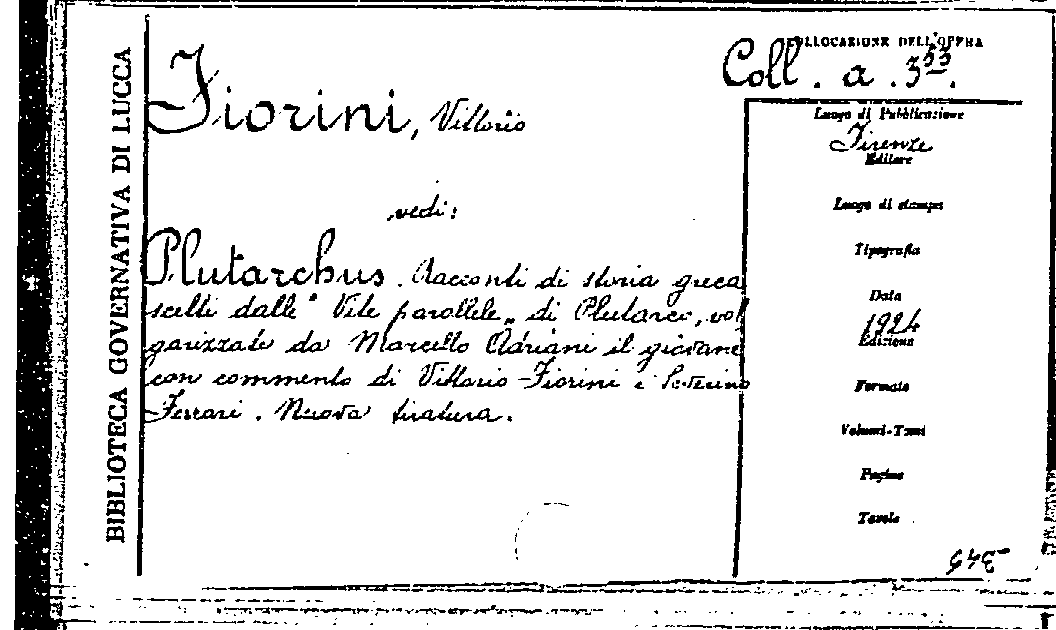 BIBLIOTECA GOVERNATIVA DI LUCCA
COLLOCAZIONE DELL'OPERA
Coll. a. 353.
Fiorini, Vittorio
vedi:
Plutarchus. Racconti di storia greca
scelti dalle "Vite parallele" di Plutarco, vol
garizzate da Marcello Adriani il giovane
con commento di Vittorio Fiorini e Severino
Ferrari. Nuova tiratura.
Luogo di Pubblicazione
Firenze
Editore
Luogo di stampa
Tipografia
Data
1924
Edizione
Formato
Volumi-Tomi
Pagine
Tavole